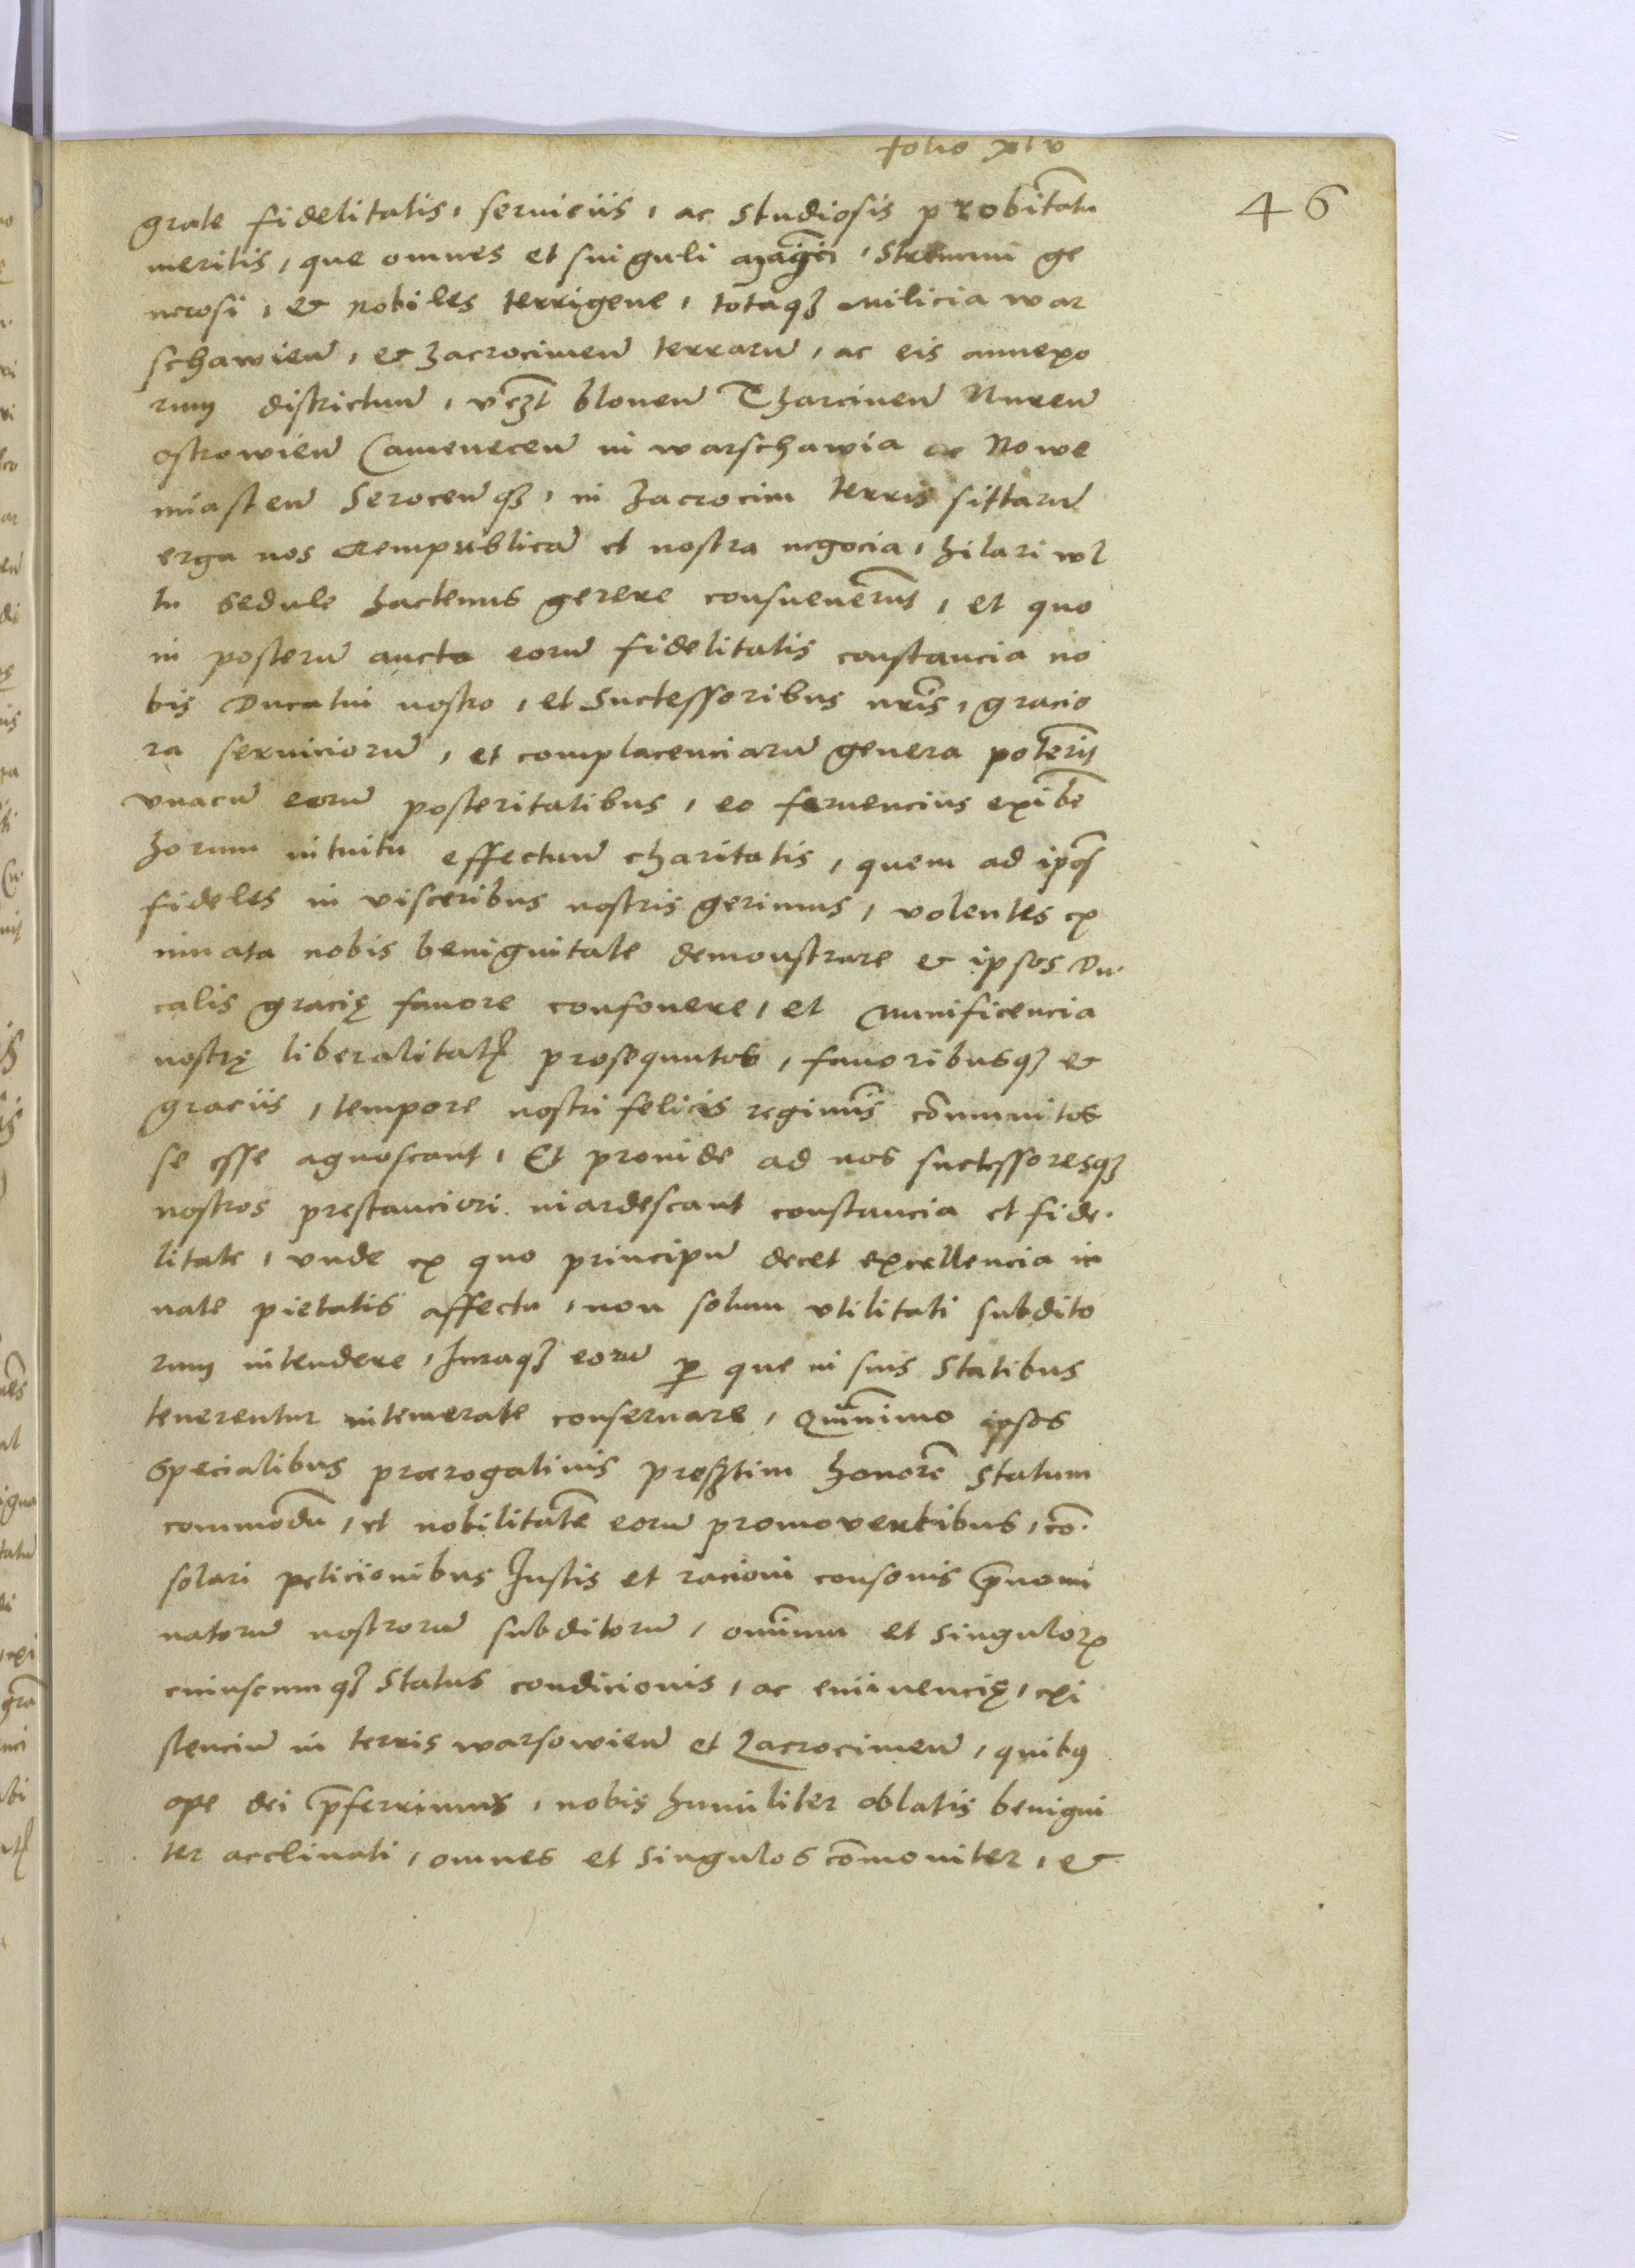 folio xlv
46
grate fidelitatis, seruiciis, ac studiosis probitatũ
meritis, que omnes et singuli magci, strenui ge
nerosi, et nobiles terrigene, totaqꝫ milicia war
schawien̄, et zacrocimen̄ terrarū, ac eis annexo
rum districtuū, vcꝫt blonen̄ Tharcinen̄ Nuren̄
ostrowien̄ Camenecen̄ in warschawia ac Nowe
miasten̄ Serocen̄qꝫ, in zacrocim terris sittarū
erga nos rempublicā et nostra negocia, hilari wl
tu sedule hactenus gerere consueuerūt, et quo
in posterū aucta eorū fidelitatis constancia no
bis Ducatui nostro, et Successoribus nr̄is, gracio
ra seruiciorū, et complacenciarū genera poterīt
vnacū eorū posteritatibus, eo feruencius exibē
horum intuitu effectuū charitatis, quem ad ip̄os
fideles in visceribus nostris gerimus, volentes ex
innata nobis benignitate demonstrare et ipsos Du
calis gracię fauore confouere, et munificencia
nostrę liberalitatꝭ prosequutos, fauoribusqꝫ et
graciis, tempore nostri felicis regimīs cōmunitos
se esse agnoscant, Et prouide ad nos successoresqꝫ
nostros prestanciori inardescant constancia et fide
litate, vnde ex quo principū decet excellencia in
nate pietatis affectu, non solum vtilitati subdito
rum intendere, Iuraqꝫ eorū ꝑ que in suis statibus
tenerentur intemerate conseruare, Quīnimo ipsos
specialibus prærogatiuis presꝫtim honorē statum
commodū, et nobilitatē eorū promouentibus, cō
solari peticionibus Iustis et racioni consonis p̄nomi
natorū nostrorū subditorū, omīum et singuloꝝ
cuiuscumqꝫ status condicionis, ac eminencię, exi
stenciū in terris warsowien̄ et Zacrocimen̄, quibꝰ
ope dei p̄ferrimus, nobis humiliter oblatis benigni
ter acclinati, omnes et singulos cōmoniter, et